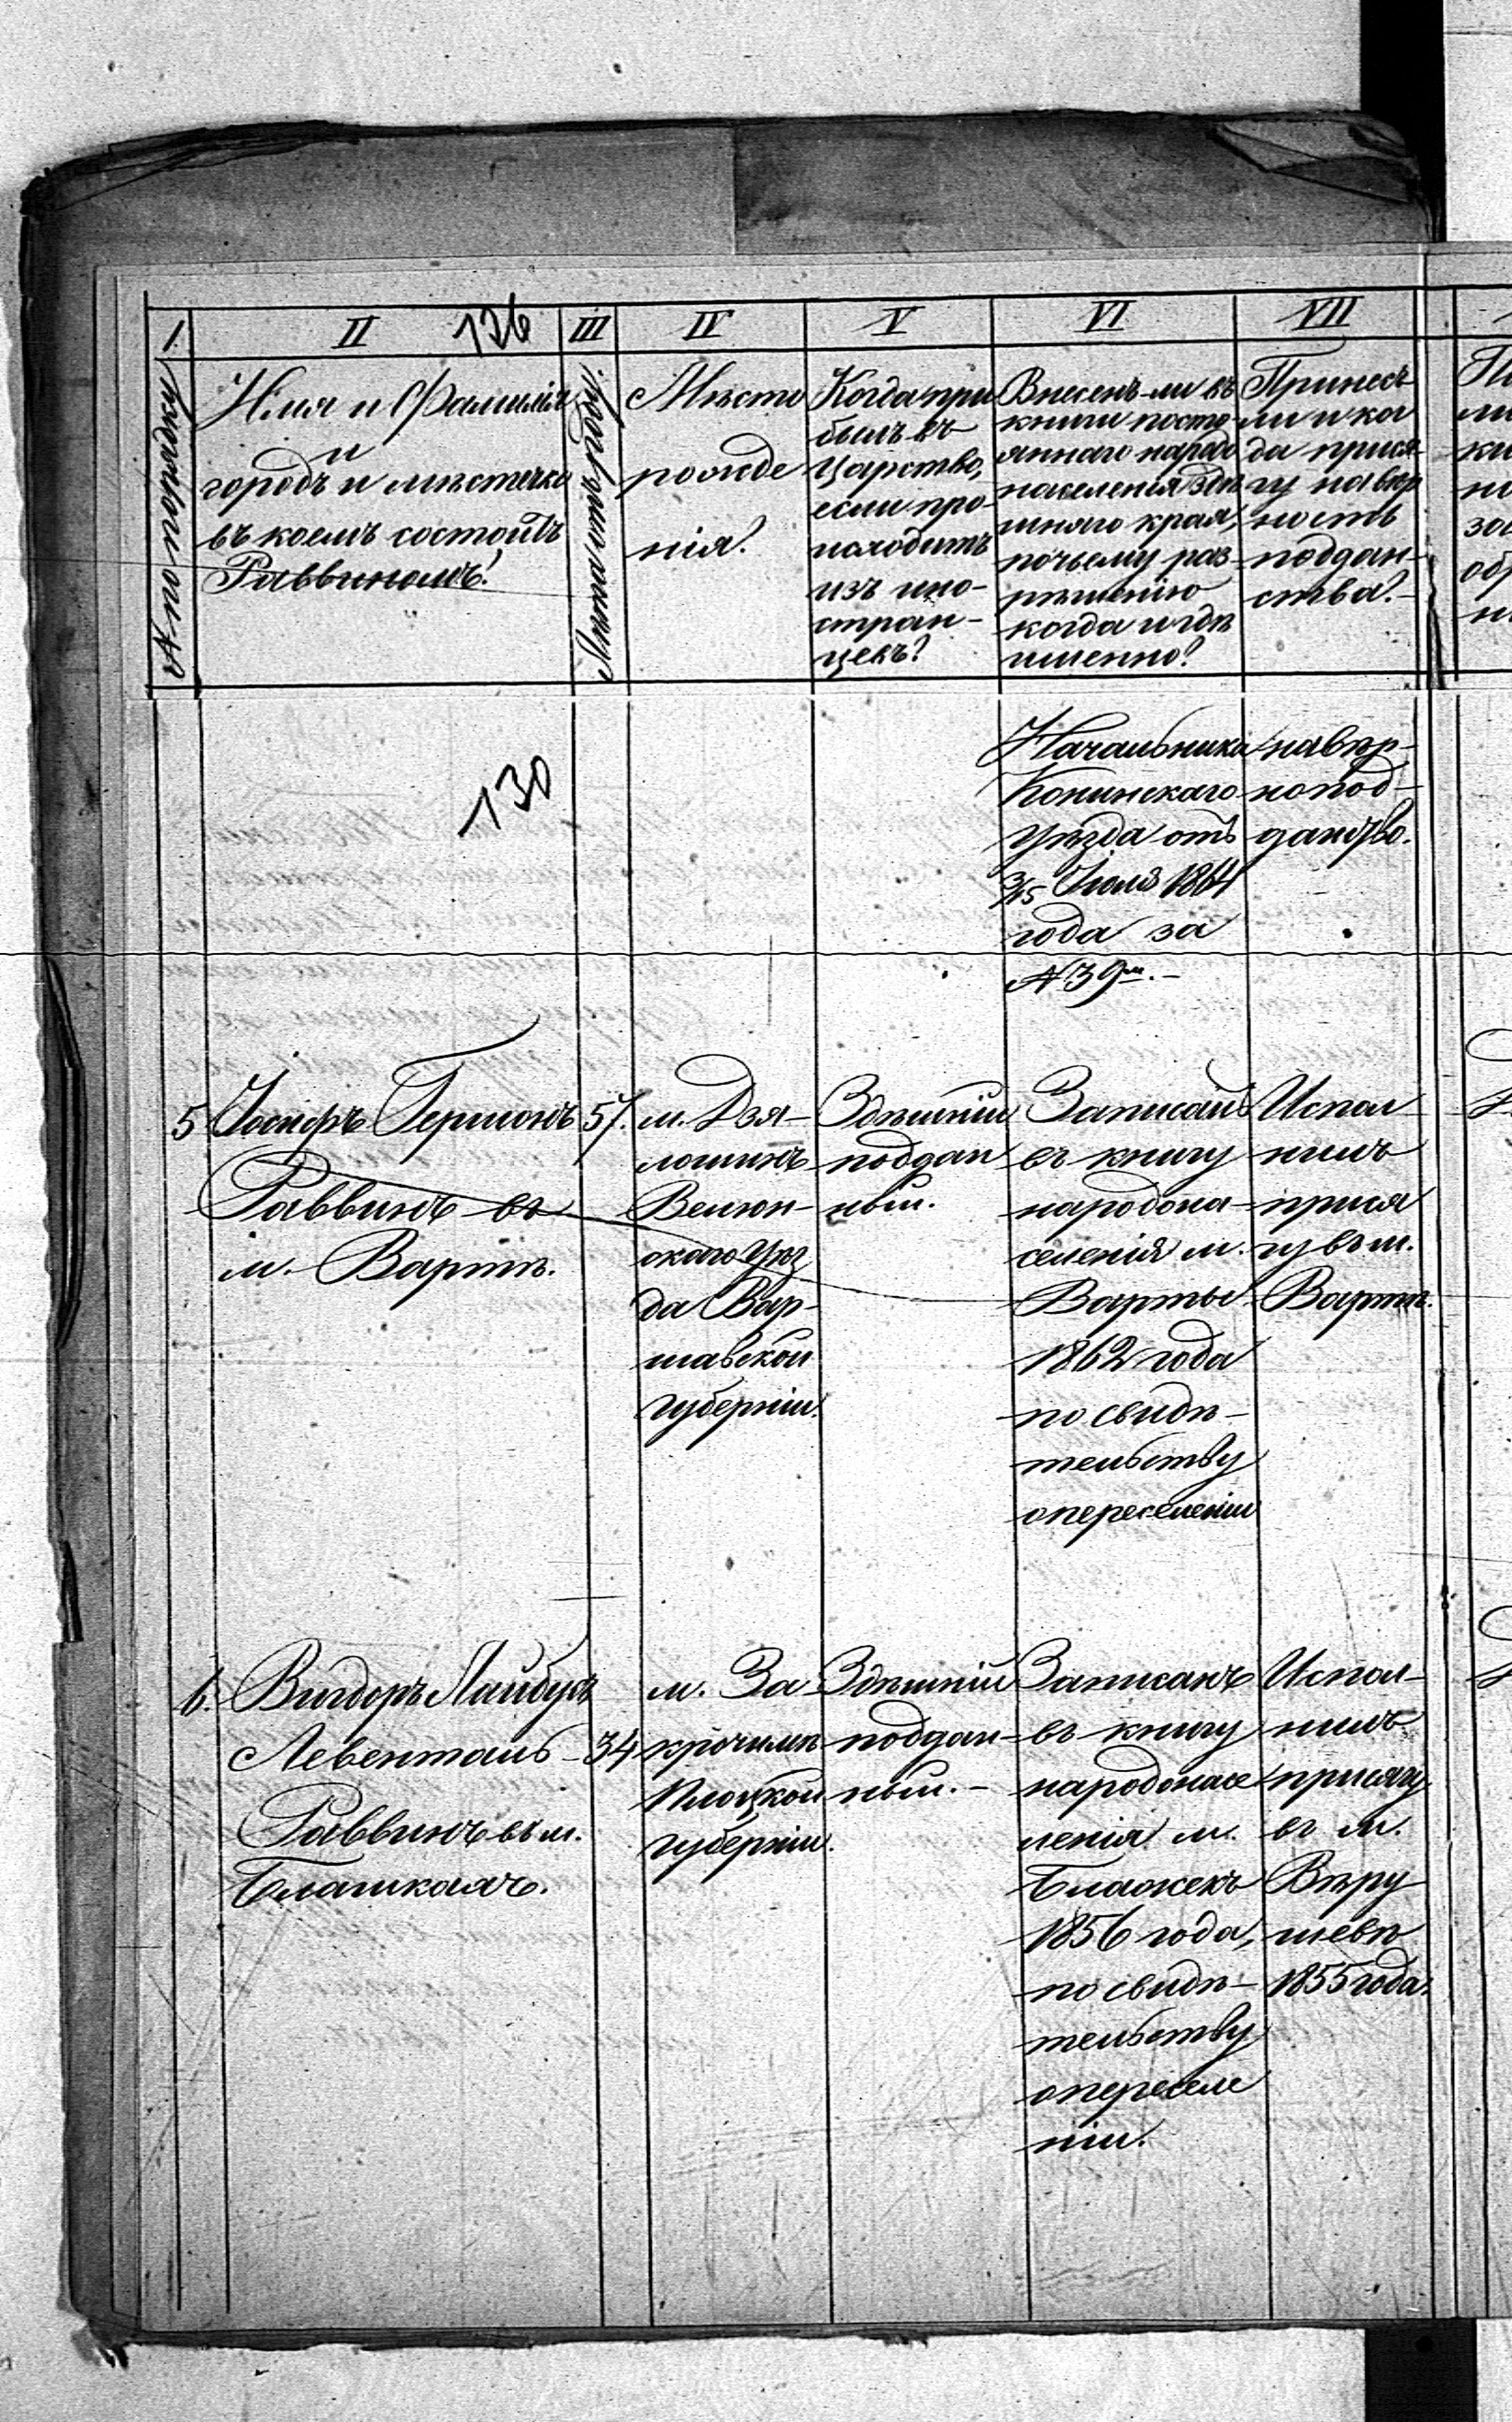 I II 126 III IV V VI VII
№ по порядку
Имя и Фамилія
и
городъ и мѣстечко
въ коемъ состоитъ
Раввиномъ?
Лѣта отъ роду?
Мѣсто
рожде
нія?
Когда при
былъ въ
Царство,
если про-
исходитъ
изъ ино-
стран-
цевъ?
Внесенъ-ли въ
книги посто-
яннаго народо
населенія здѣ
шняго края,
почьему раз-
рѣшенію
когда и гдѣ
именно?
Принесъ
ли и ког
да прися-
гу на вѣр
ность
поддан-
ства?
130
Начальника
Конинскаго
Уѣзда отъ
3/15 Іюля 1864
года за
№ 39
на вѣр-
нопод-
данство.
5 Іосифъ Германъ 57.
Раввинъ въ
м. Вартѣ.
м. Дзя-
лошинъ
Велюн-
скаго Уѣз
да Вар-
шавской
Губерніи.
Здѣшній
поддан
ный.
Записанъ
въ книгу
народона-
селенія м.
Варты
1862 года
по свидѣ-
тельству
о переселеніи
Испол-
нилъ
прися
гу въ м.
Вартѣ.
6. Вигдоръ Лайбусъ
Левенталь 34
Раввинъ въ м.
Блашкахъ.
м. За
крочимѣ
Плоцкой
губерніи.
Здѣшній
поддан-
ный.-
Записанъ
въ книгу
народонасе
ленія м.
Блажекъ
1856 года,
по свидѣ-
тельству
о переселе
ніи.
Испол-
нилъ
присягу
въ м.
Вѣру
шевѣ
1855 года.